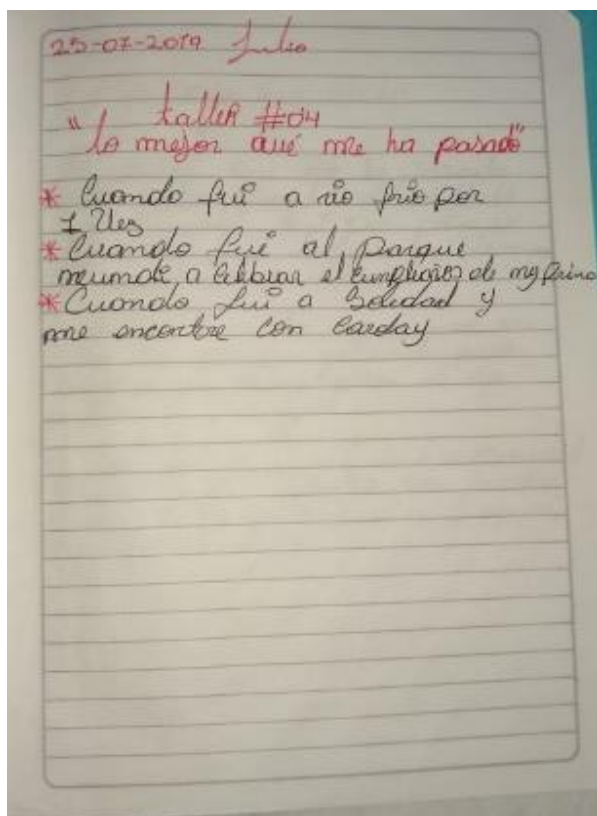 25-07-2019 Julio
taller #04
"Lo mejor que me ha pasado"
* Cuando fui a rio frio por
1 Vez
* Cuando fui al parque
a celebrar el cumpleaños de my primo
* Cuando fui a Soledad y
me encontre con